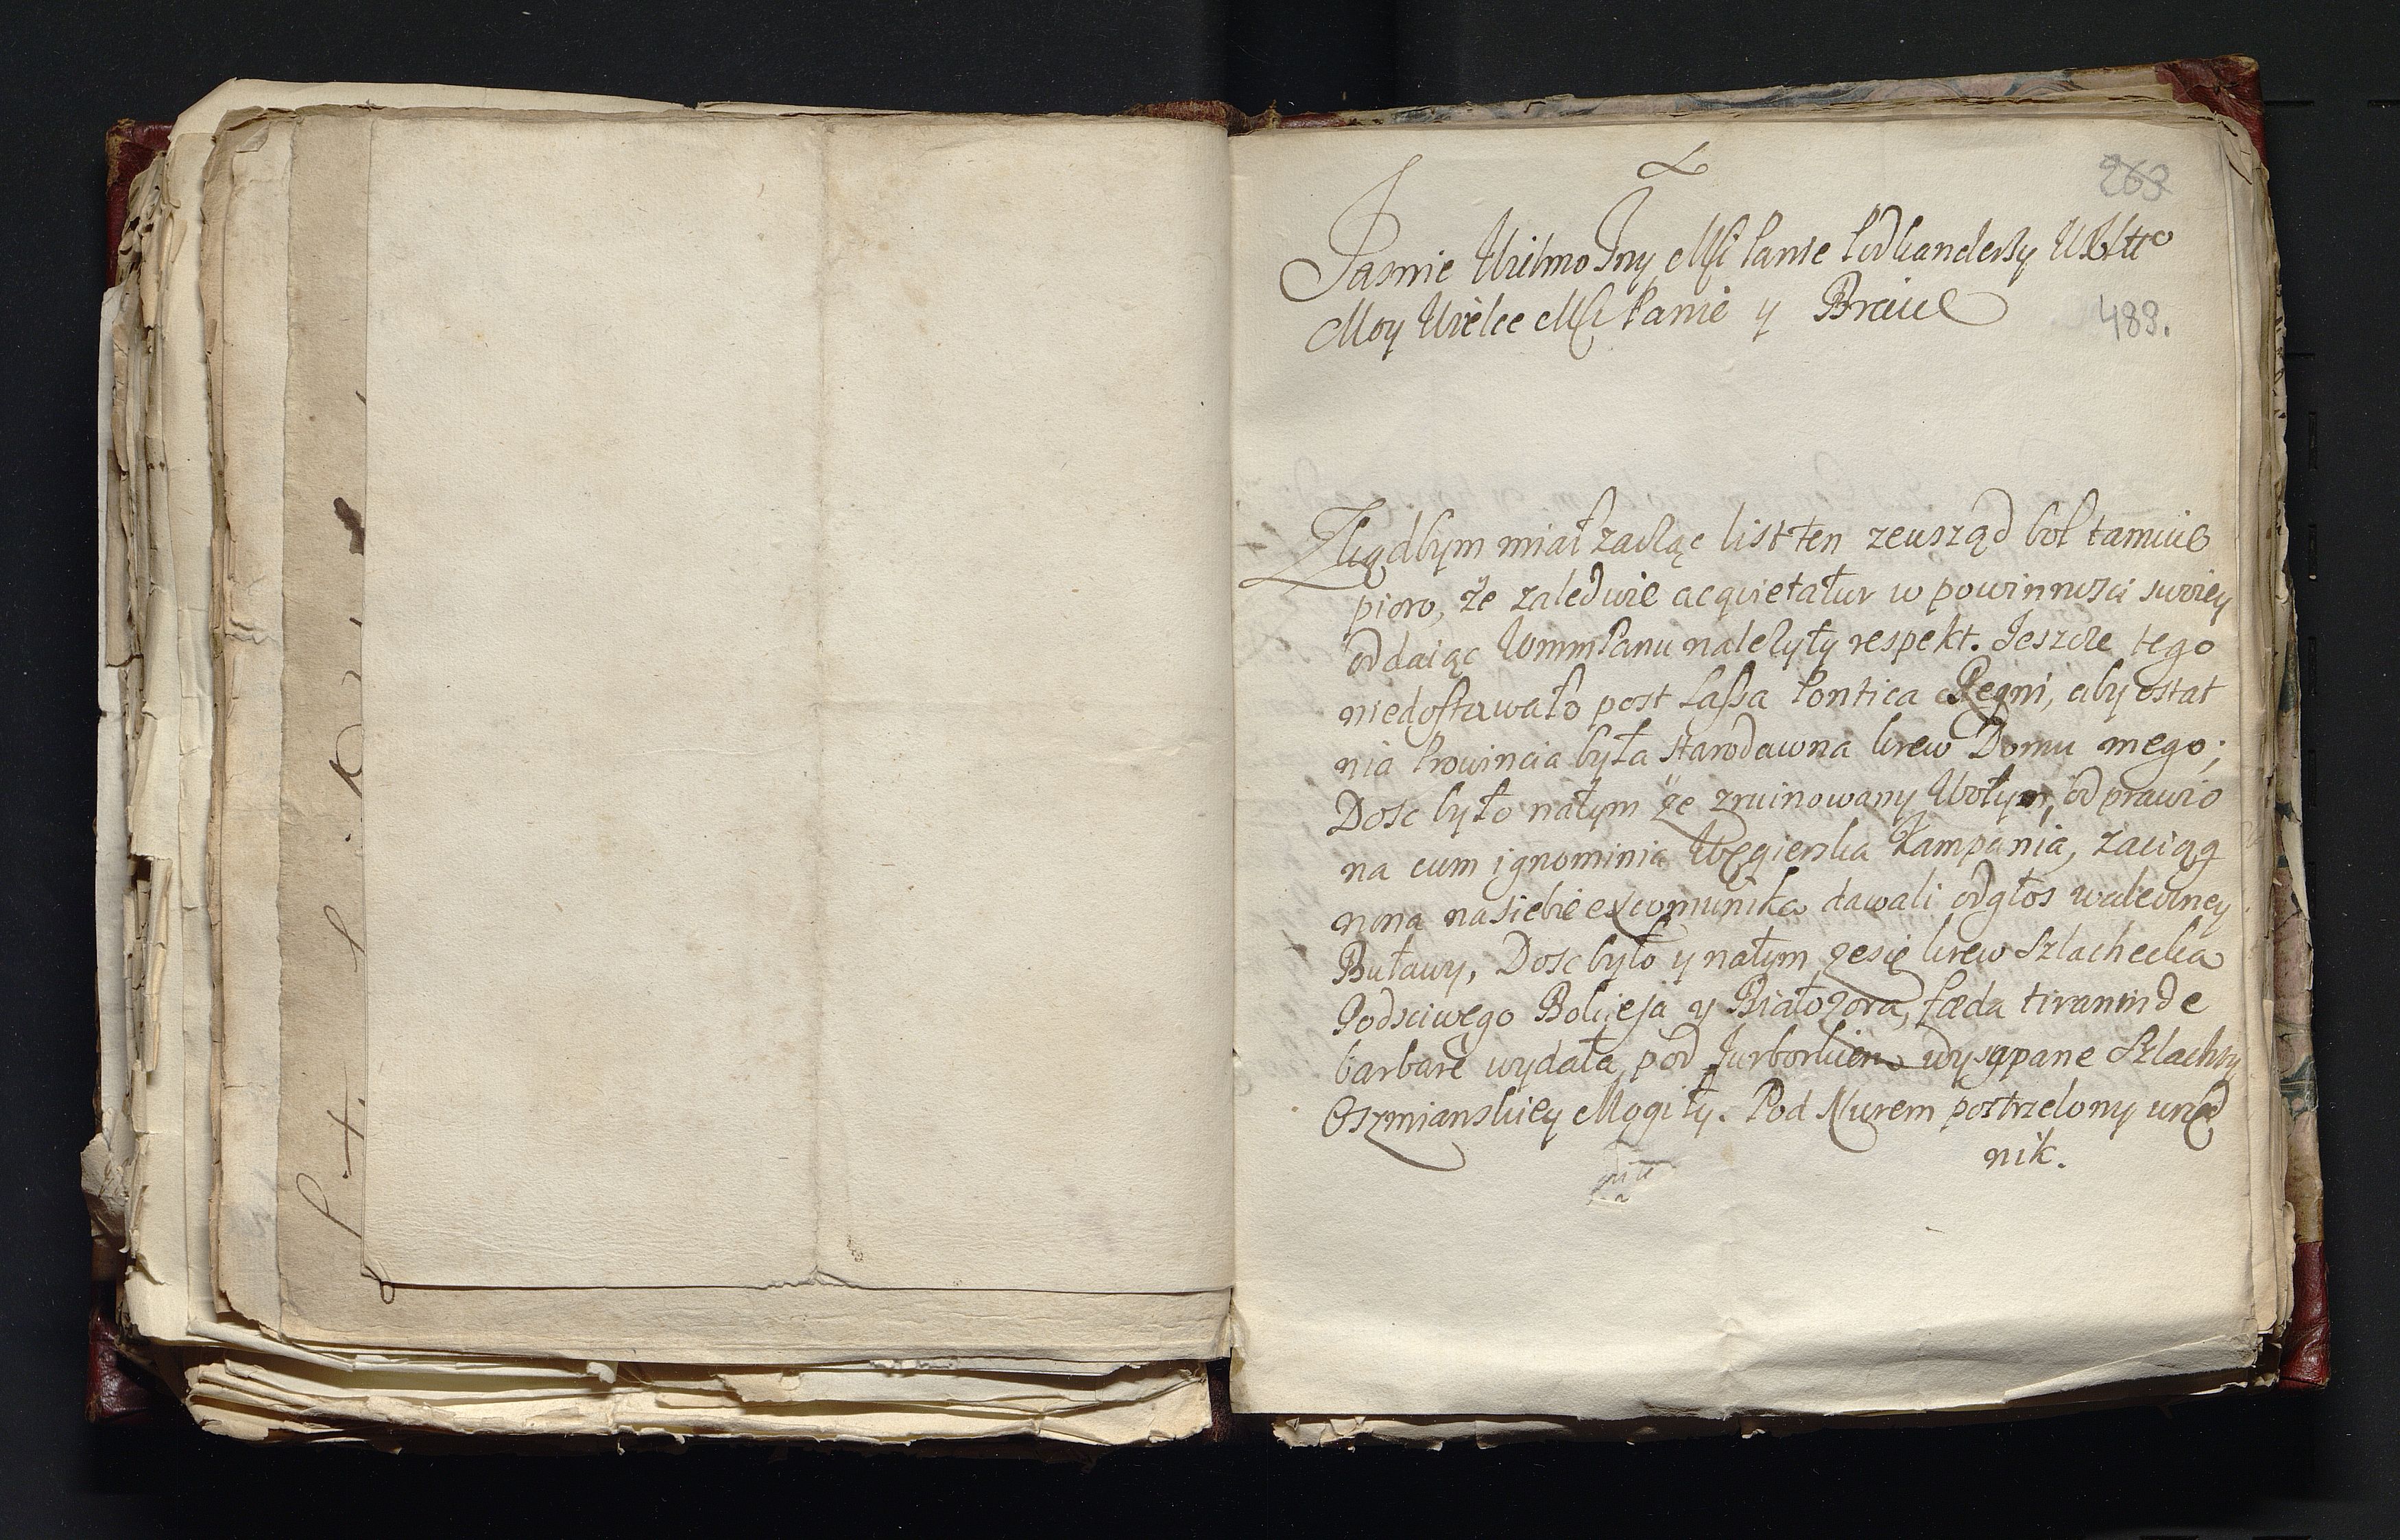 263
Jasnie Wielmozny Msci Panie Podkanclerzy WXLitto
Moy Wielce Msci Panie y Bracie
483.
Zkądbym miał zacząc list ten zewsząd bol tamuie
pioro, że zaledwie acquietatur w powinnosci swoiey
oddaiąc WMMPanu należyty respekt. Jeszcze tego
niedostawało post Passa Pontica Regni, aby ostat
nia Prowincia była starodawna krew Domu mego;
Dosc było natym że zruinowany Wołyn, odprawio
na cum ignominia Węgierska Kampania, zaciąg
niona nasiebie excomunika dawali odgłos waleczney
Buławy, Dosc było y natym żesię krew Szlachecka
Podsciwego Bokieja y Białozora, fæda tirannide
barbarè wydała, pod Jurborkiem wysypane Szlachty
Oszmianskiey Mogiły. Pod Murem postrzelony urzęd
nik.